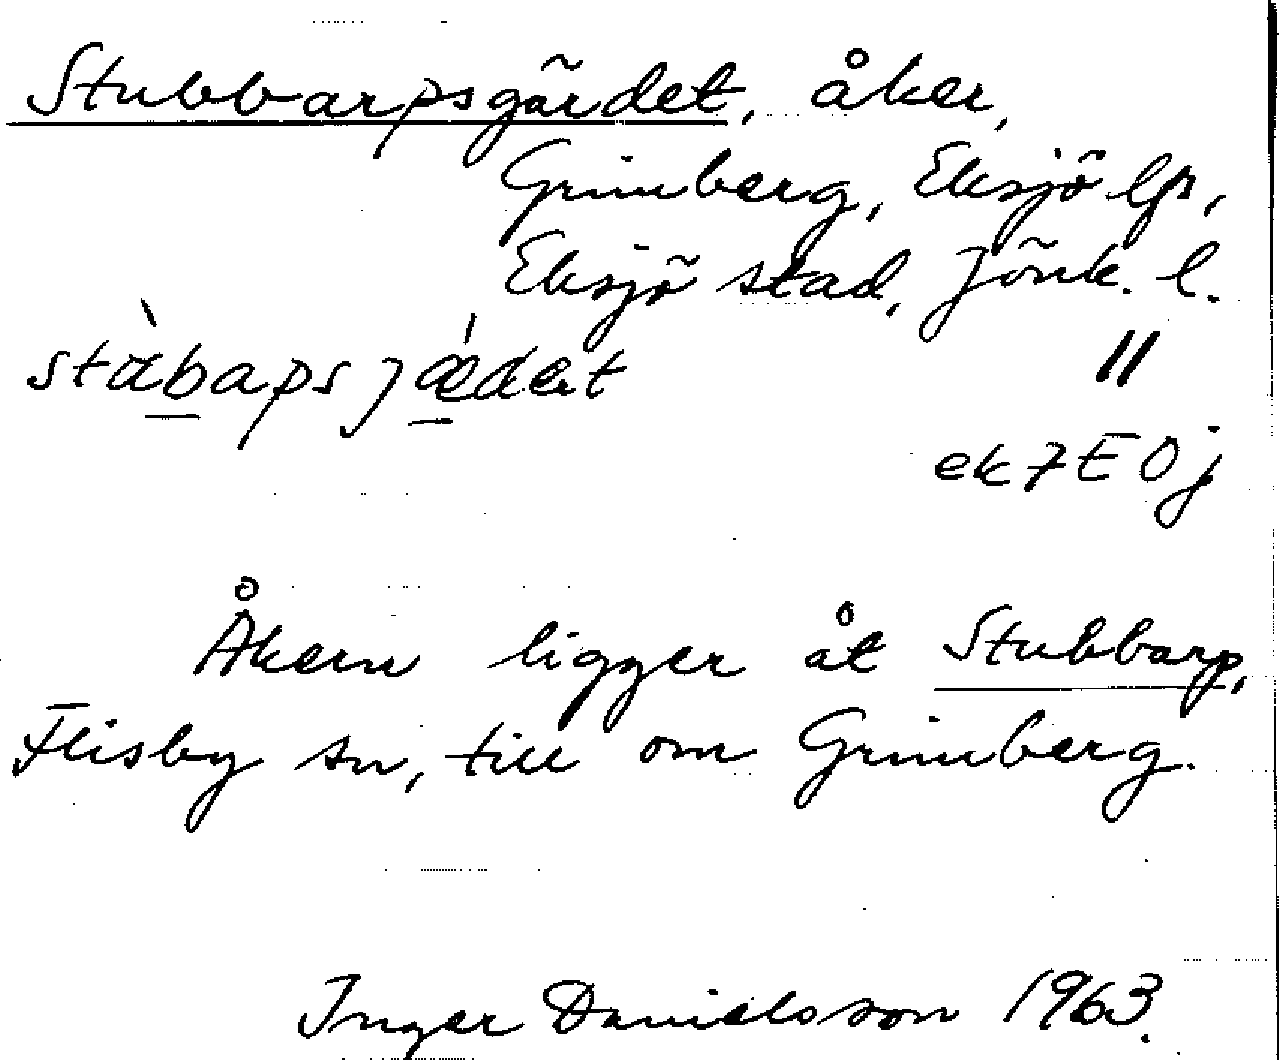 Stubbarpsgärdet, åker,
Grimberg, Eksjö lfs,
Eksjö stad, Jönk. l.
stàbapsjǽdæt
"
ek 7 E 0 j
Åkern ligger åt Stubbarp,
Flisby sn, till om Grimberg.
Inger Danielsson 1963.